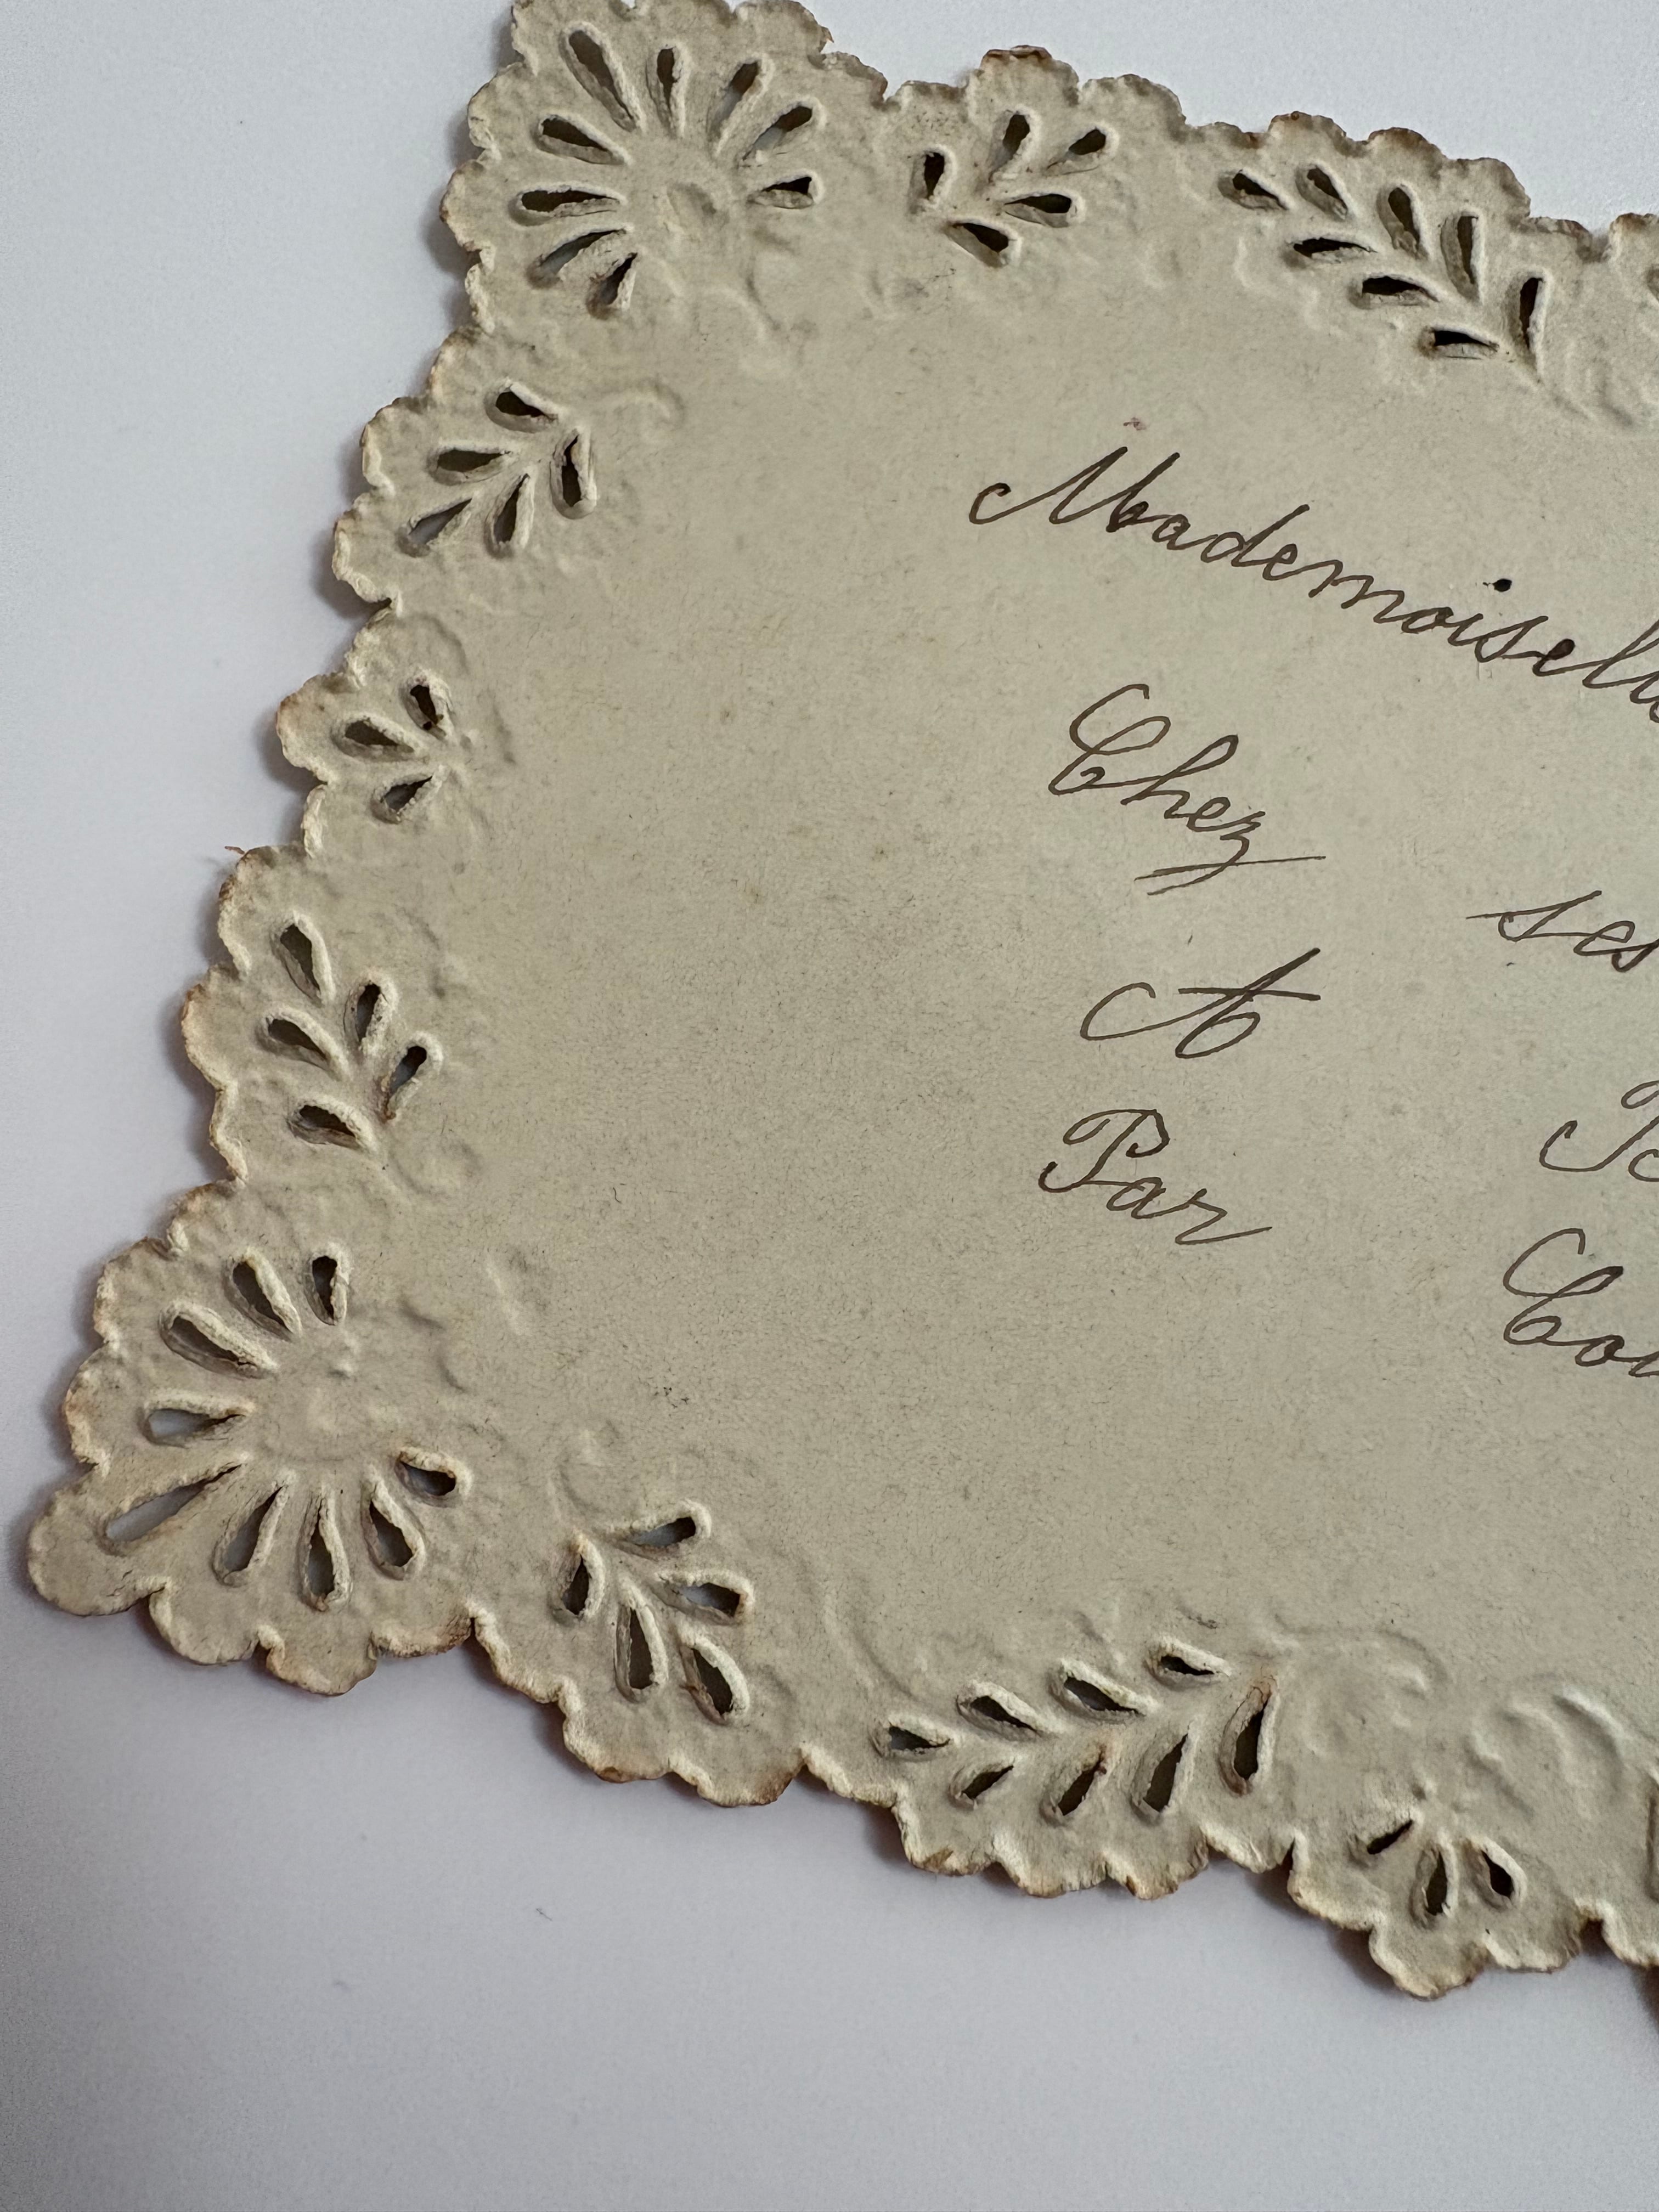 Mademoiselle
Chez ses
A B
Par Cou